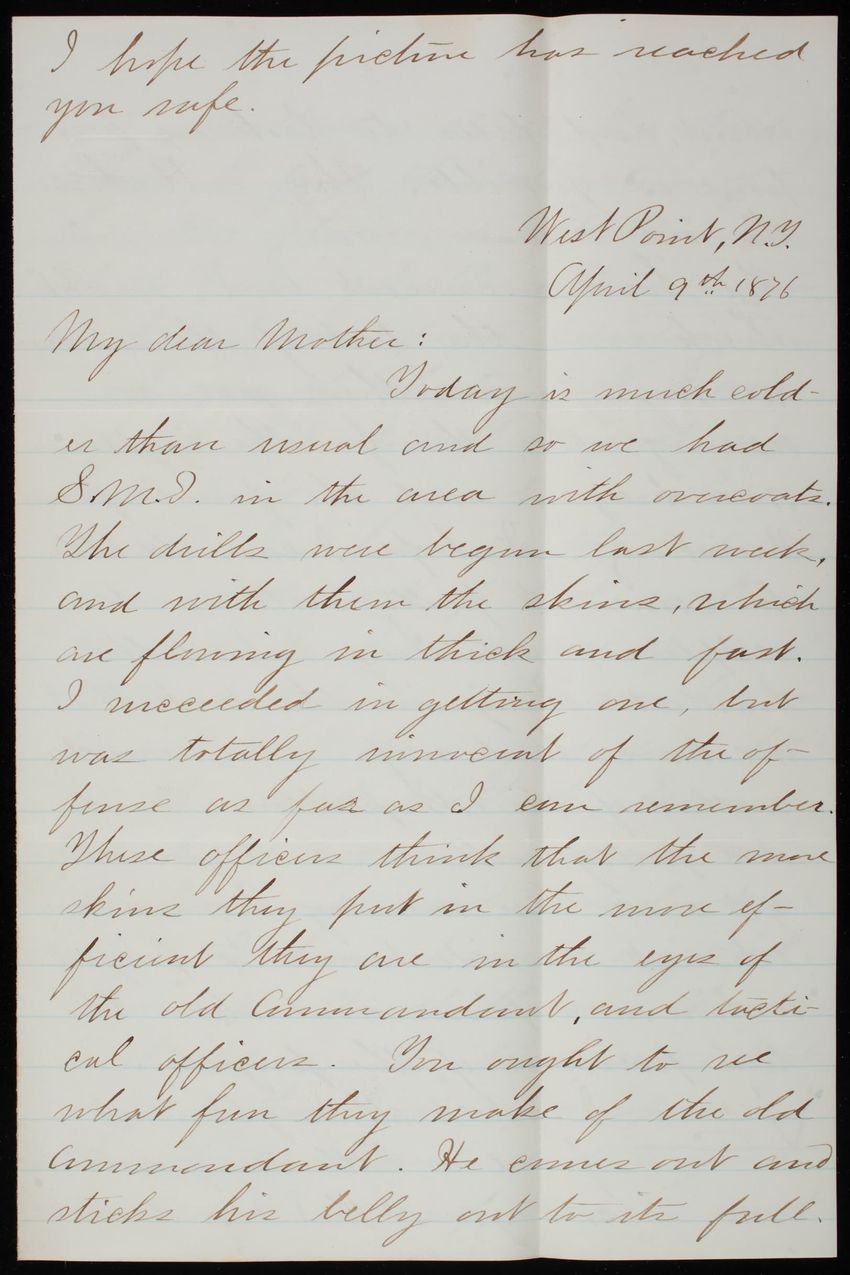 I hope the picture has reached
you safe.
West Point, N.Y.
April 9th 1876
My dear Mother:
Today is much cold-
er than usual and so we had
S.M.I. in the area with overcoats.
The drills were begun last week,
and with them the skins, which
are flowing in thick and fast.
I succeeded in getting one, but
was totally innocent of the of-
fense as far as I can remember.
These officers think that the more
skins they put in the more ef-
ficient they are in the eyes of
the old Commandant, and tacti-
cal officers. You ought to see
what fun they make of the old
Commandant. He comes out and
sticks his belly out to its full.